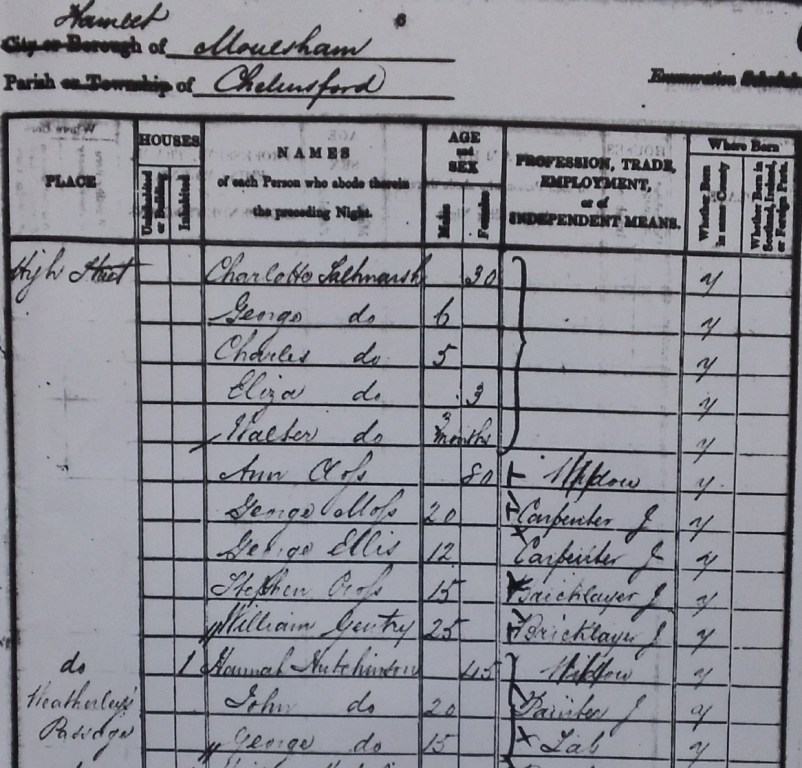 Hamlet
City or Borough of Moulsham
Parish or Township of Chelmsford
Enumeration Schedule
PLACE
HOUSES
Uninhabited or Building
Inhabited
NAMES
of each Person who abode therein
the preceding Night.
AGE
and
SEX
Males
Females
PROFESSION, TRADE,
EMPLOYMENT,
or of
INDEPENDENT MEANS.
Where Born
Whether Born in same County
Whether Born in Scotland, Ireland, or Foreign Parts.
High Street Charlotte Saltmarsh 30 y
George do 6 y
Charles do 5 y
Eliza do 3 y
Walter do 3 months y
Ann Cross 80 Widow y
George Moss 20 Carpenter J y
George Ellis 12 Carpenter J y
Stephen Cross 15 Bricklayer J y
William Gentry 25 Bricklayer J y
do 1 Hannah Hutchinson 45 Widow y
Heatherley's John do 20 Painter J y
Passage George do 15 Lab y